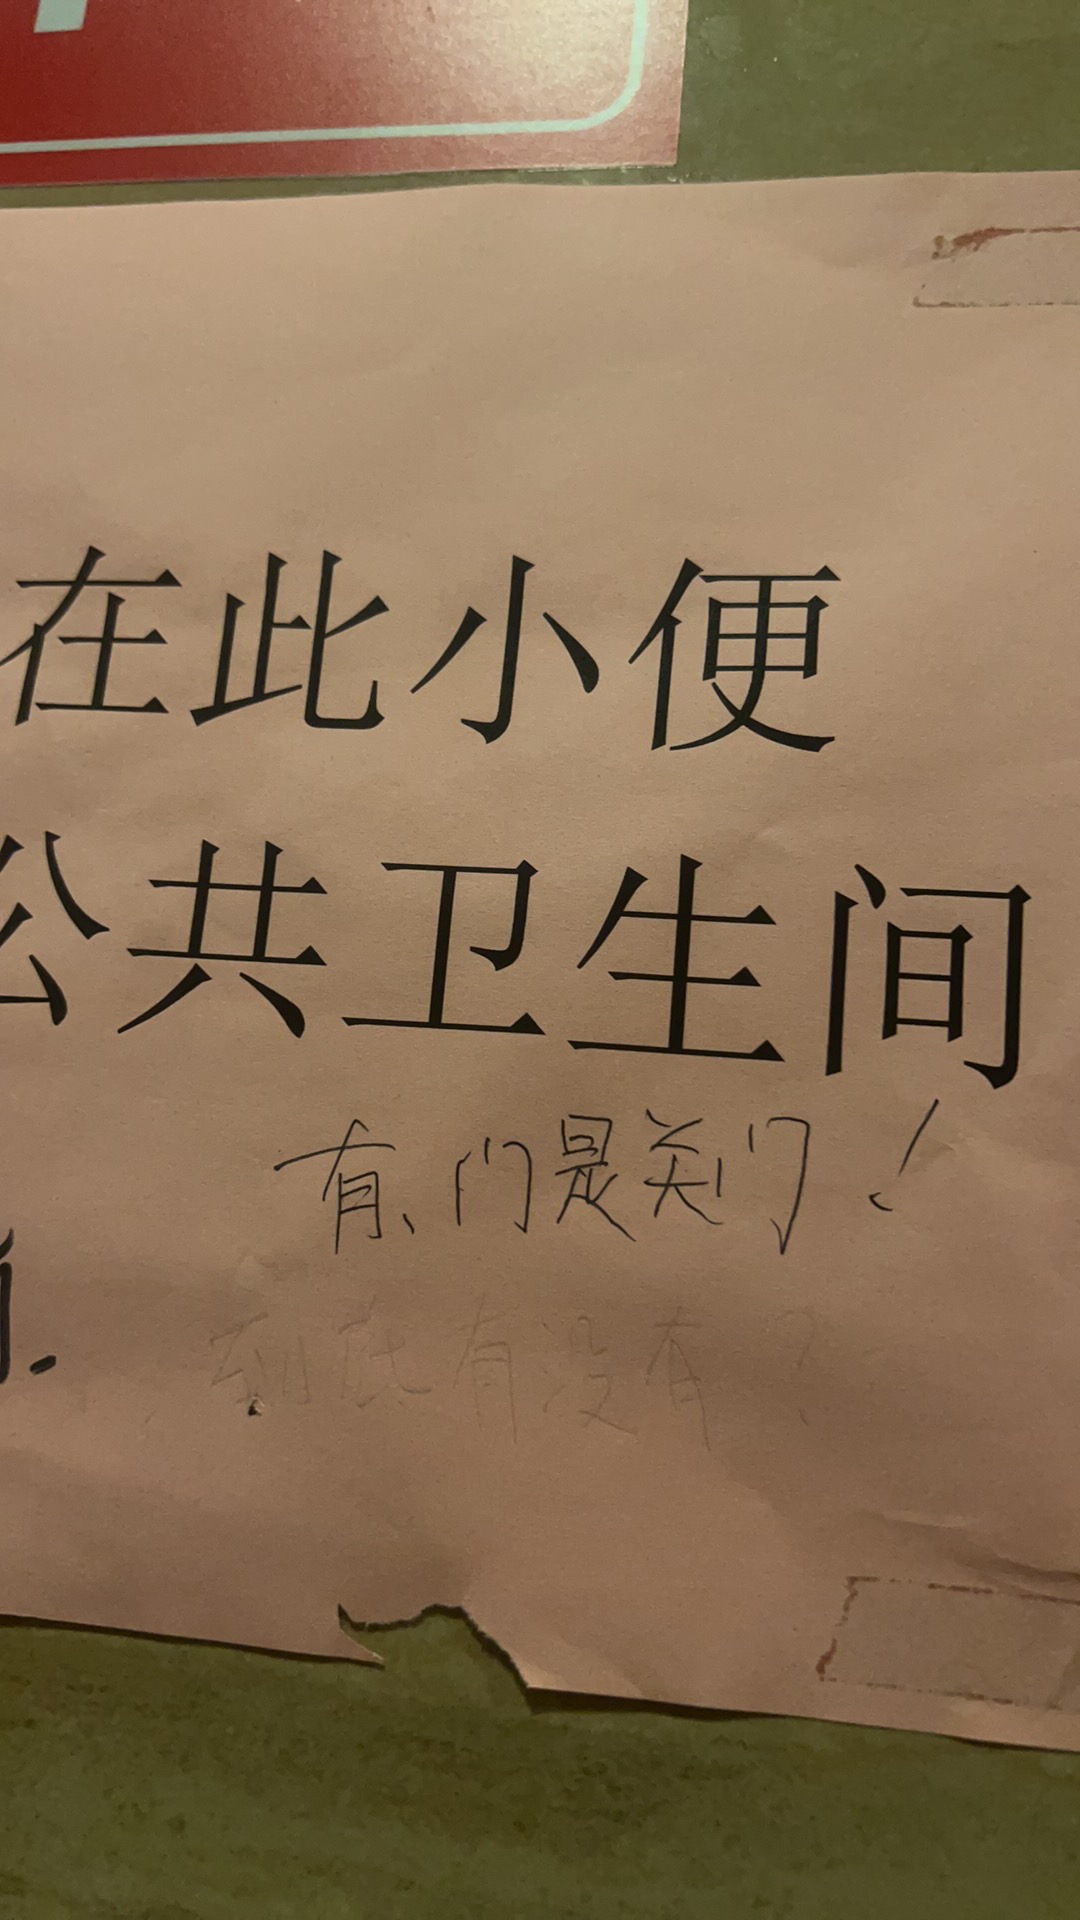 在此小便
公共卫生间
有、门是关门！
到底有没有？